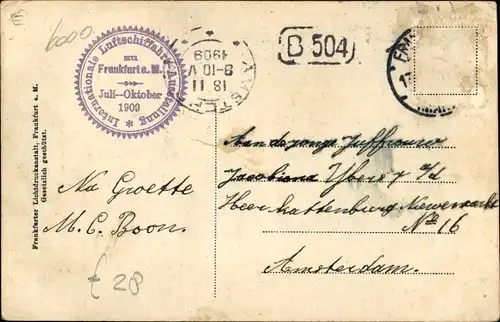 6000
Internationale Luftschiffahrt-Ausstellung
zu
Frankfurt a. M.
Juli–Oktober
1909
18 11
8-10 V
1909
B 504
Frankfurter Lichtdruckanstalt, Frankfurt a. M.
Gesetzlich geschützt.
Na Groette
M. C. Boon.
£ 28
Aan de jonge Juffrouw
Heerkattenburg
No 16
Amsterdam.